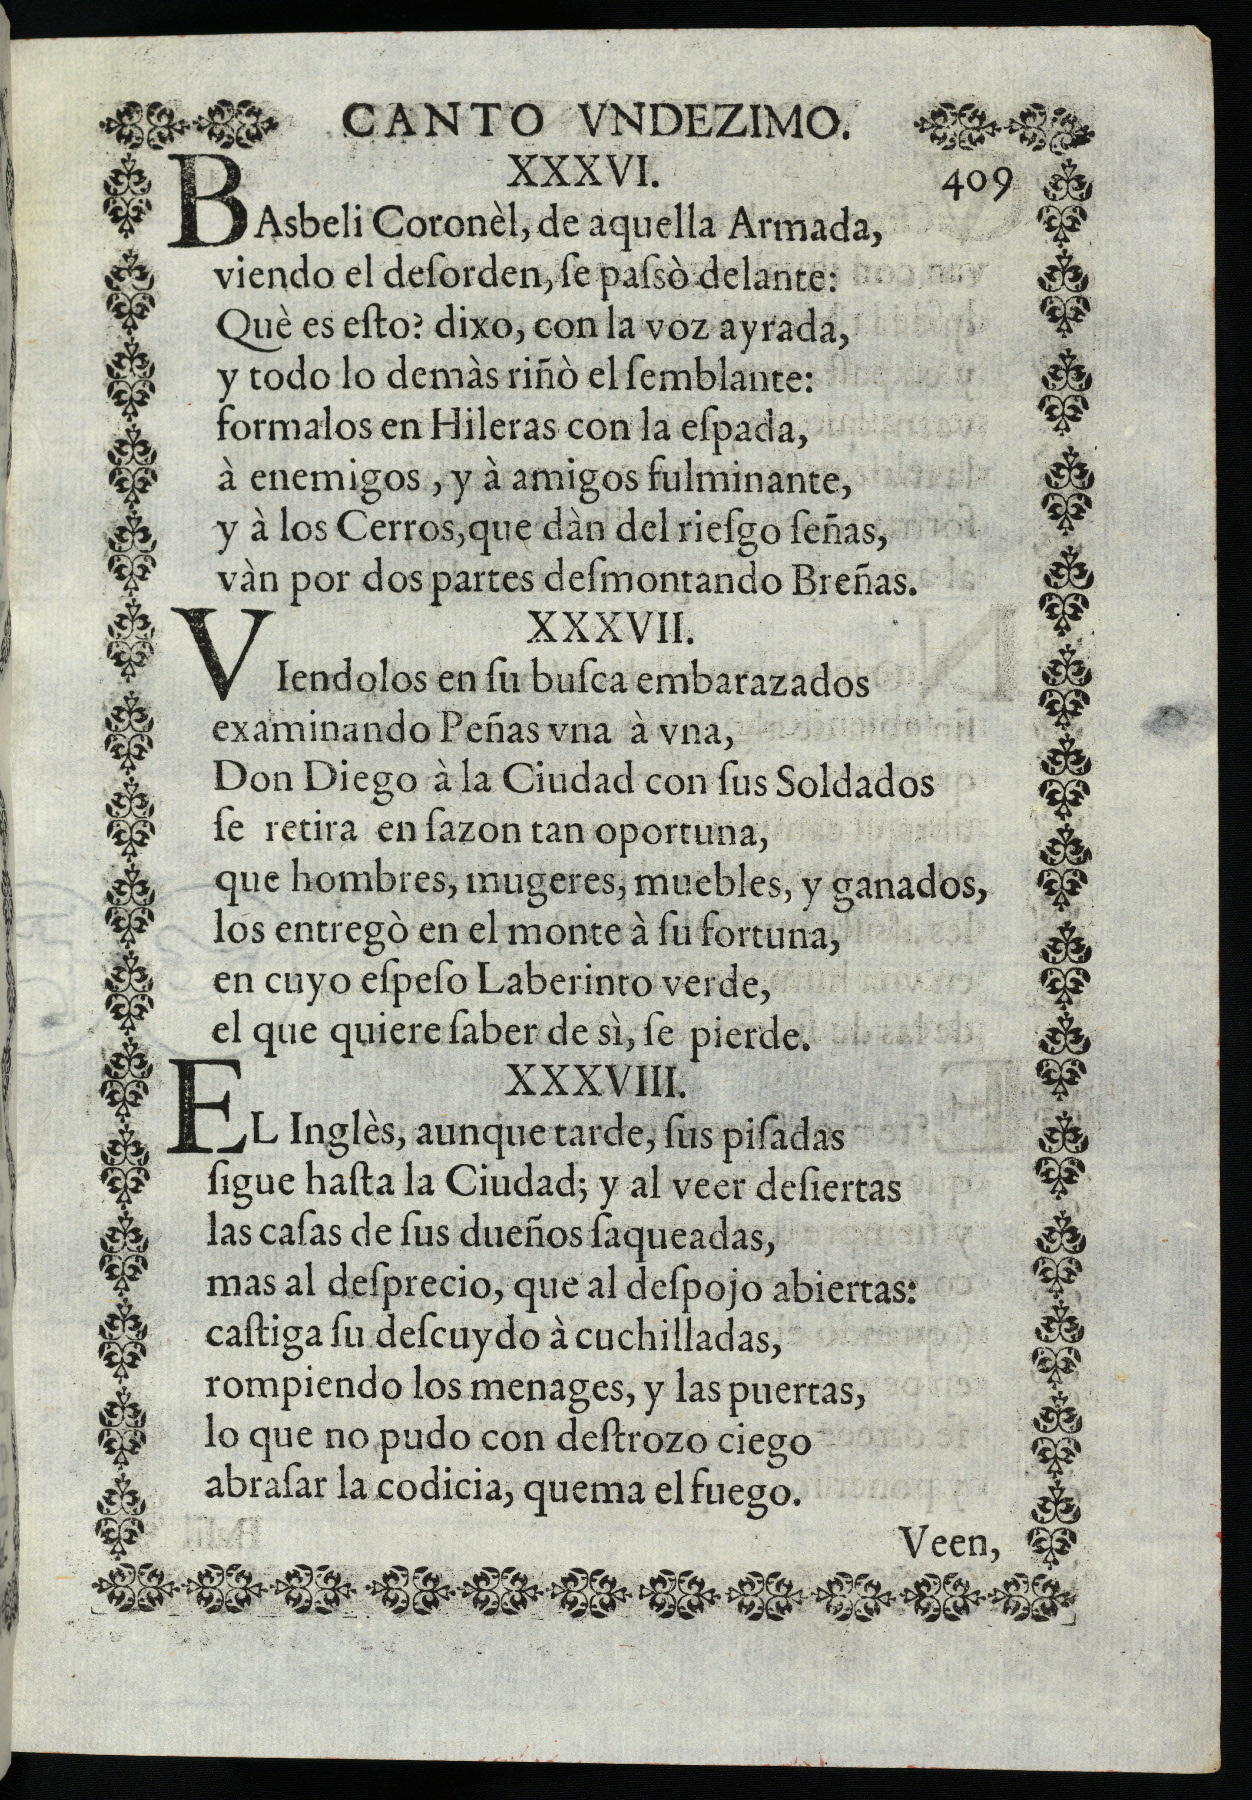 CANTO VNDEZIMO.
409
XXXVI.
BAsbeli Coronèl, de aquella Armada,
viendo el deſorden, ſe paſsò delante:
Què es eſto? dixo, con la voz ayrada,
y todo lo demàs riñò el ſemblante:
formalos en Hileras con la eſpada,
à enemigos, y à amigos fulminante,
y à los Cerros, que dàn del rieſgo ſeñas,
vàn por dos partes deſmontando Breñas.
XXXVII.
VIendolos en ſu buſca embarazados
examinando Peñas vna à vna,
Don Diego à la Ciudad con ſus Soldados
ſe retira en ſazon tan oportuna,
que hombres, mugeres, muebles, y ganados,
los entregò en el monte à ſu fortuna,
en cuyo eſpeſo Laberinto verde,
el que quiere ſaber de sì, ſe pierde.
XXXVIII.
EL Inglès, aunque tarde, ſus piſadas
ſigue haſta la Ciudad; y al veer deſiertas
las caſas de ſus dueños ſaqueadas,
mas al deſprecio, que al deſpojo abiertas:
caſtiga ſu deſcuydo à cuchilladas,
rompiendo los menages, y las puertas,
lo que no pudo con deſtrozo ciego
abraſar la codicia, quema el fuego.
Veen,